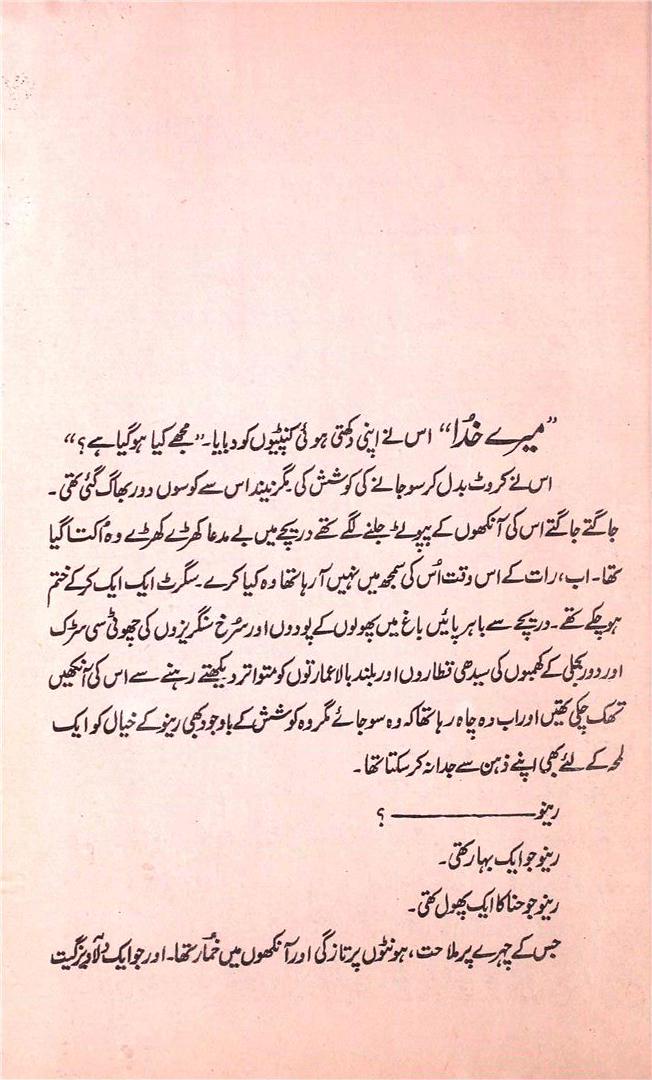 "میرے خدُا" اس نے اپنی دکھتی ہوئی کنپٹیوں کو دبایا۔ "مجھے کیا ہو گیا ہے؟"
اس نے کروٹ بدل کر سو جانے کی کوشش کی مگر نیند اس سے کوسوں دور بھاگ گئی تھی۔
جاگتے جاگتے اس کی آنکھوں کے پپوٹے جلنے لگے تھے دریچے میں بے مدعا کھڑے کھڑے وہ اُکتا گیا
تھا۔ اب، رات کے اس وقت اُس کی سمجھ میں نہیں آ رہا تھا وہ کیا کرے۔ سگرٹ ایک ایک کر کے ختم
ہو چکے تھے۔ دریچے سے باہر پائیں باغ میں پھولوں کے پودوں اور سرُخ سنگریزوں کی چھوٹی سی سڑک
اور دور بجلی کے کھمبوں کی سیدھی قطاروں اور بلند بالا عمارتوں کو متواتر دیکھتے رہنے سے اس کی آنکھیں
تھک چکی تھیں اور اب وہ چاہ رہا تھا کہ وہ سو جائے مگر وہ کوشش کے باوجود بھی رینو کے خیال کو ایک
لمحہ کے لئے بھی اپنے ذہن سے جدا نہ کر سکتا تھا۔
رینو ـــــــــــــــــ ؟
رینو جو ایک بہار تھی۔
رینو جو حنا کا ایک پھول تھی۔
جس کے چہرے پر ملاحت، ہونٹوں پر تازگی اور آنکھوں میں خمُار تھا۔ اور جو ایک دلآویز گیت